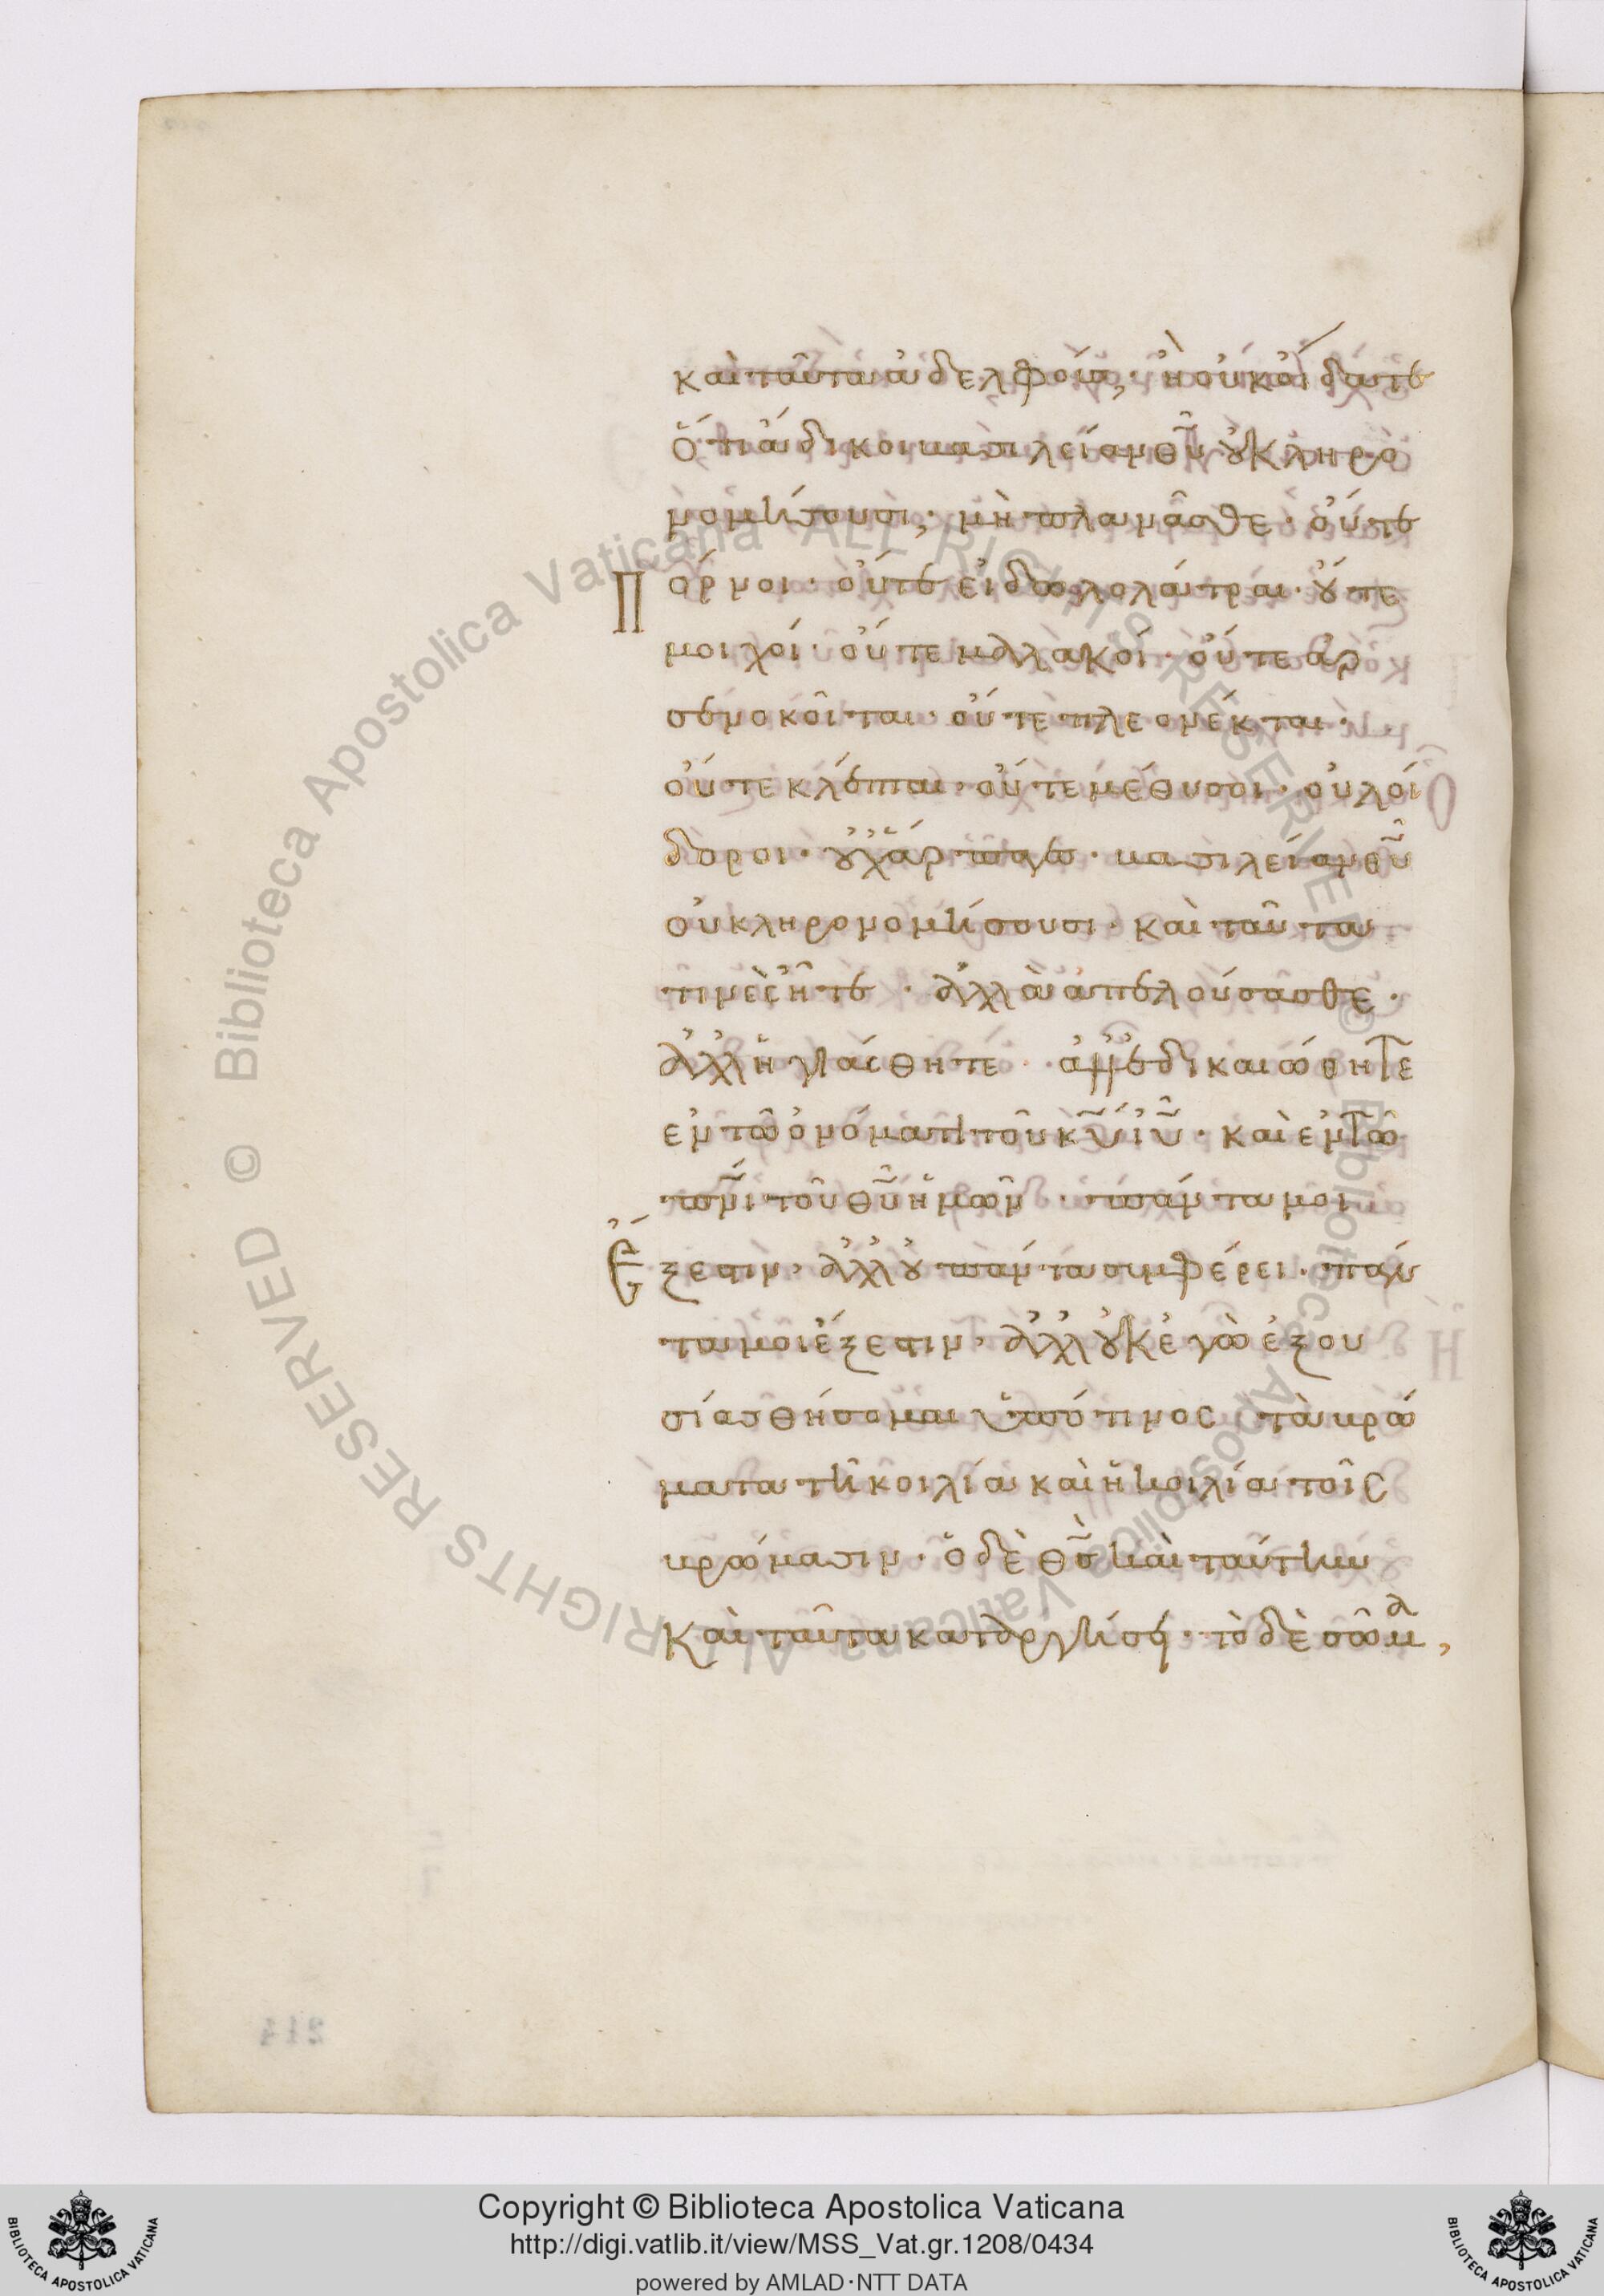 καὶ ταῦτα ἀδελφούς; ἢ οὐκ οἴδατε
ὅτι ἄδικοι βασιλείαν θῦ οὐ κληρο
νομήσουσι; μὴ πλανᾶσθε · οὔτε
πόρνοι · οὔτε εἰδωλολάτραι · οὔτε
μοιχοί · οὔτε μαλακοί · οὔτε ἀρ
σενοκοῖται · οὔτε πλεονέκται ·
οὔτε κλέπται · οὔτε μέθυσοι · οὐ λοί
δοροι · οὐχ ἅρπαγες · βασιλείαν θῦ
οὐ κληρονομήσουσι · καὶ ταῦτα
τινὲς ἦτε · ἀλλὰ ἀπελούσασθε ·
ἀλλ' ἡγιάσθητε · ἀλλ' ἐδικαιώθητε
ἐν τῶ ὀνόματι τοῦ κῦ ἰῦ · καὶ ἐν τῶ
πνι τοῦ θῦ ἡμῶν · πάντα μοι
ἔξεστιν · ἀλλ' οὐ πάντα συμφέρει · πάν
τα μοι ἔξεστιν · ἀλλ' οὐκ ἐγὼ ἐξου
σιασθήσομαι ὑπό τινος τὰ βρώ
ματα τῆ κοιλία καὶ ἡ κοιλία τοῖς
βρώμασιν · ὁ δὲ θς καὶ ταύτην
καὶ ταῦτα καταργήσει · τὸ δὲ σῶμα,
214
© Biblioteca Apostolica Vaticana ALL RIGHTS RESERVED © Biblioteca Apostolica Vaticana ALL RIGHTS RESERVED
Copyright © Biblioteca Apostolica Vaticana
http://digi.vatlib.it/view/MSS_Vat.gr.1208/0434
powered by AMLAD·NTT DATA
BIBLIOTECA APOSTOLICA VATICANA
BIBLIOTECA APOSTOLICA VATICANA